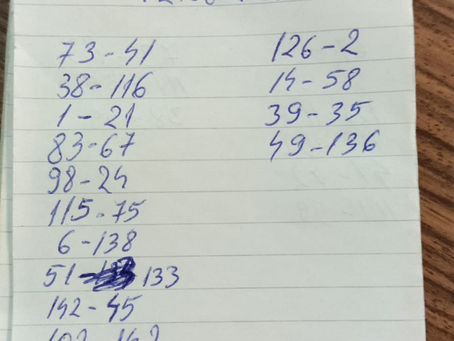 73-41
38-116
1-21
83-67
98-24
115-75
6-138
51-133
142-45
126-2
14-58
39-35
49-136